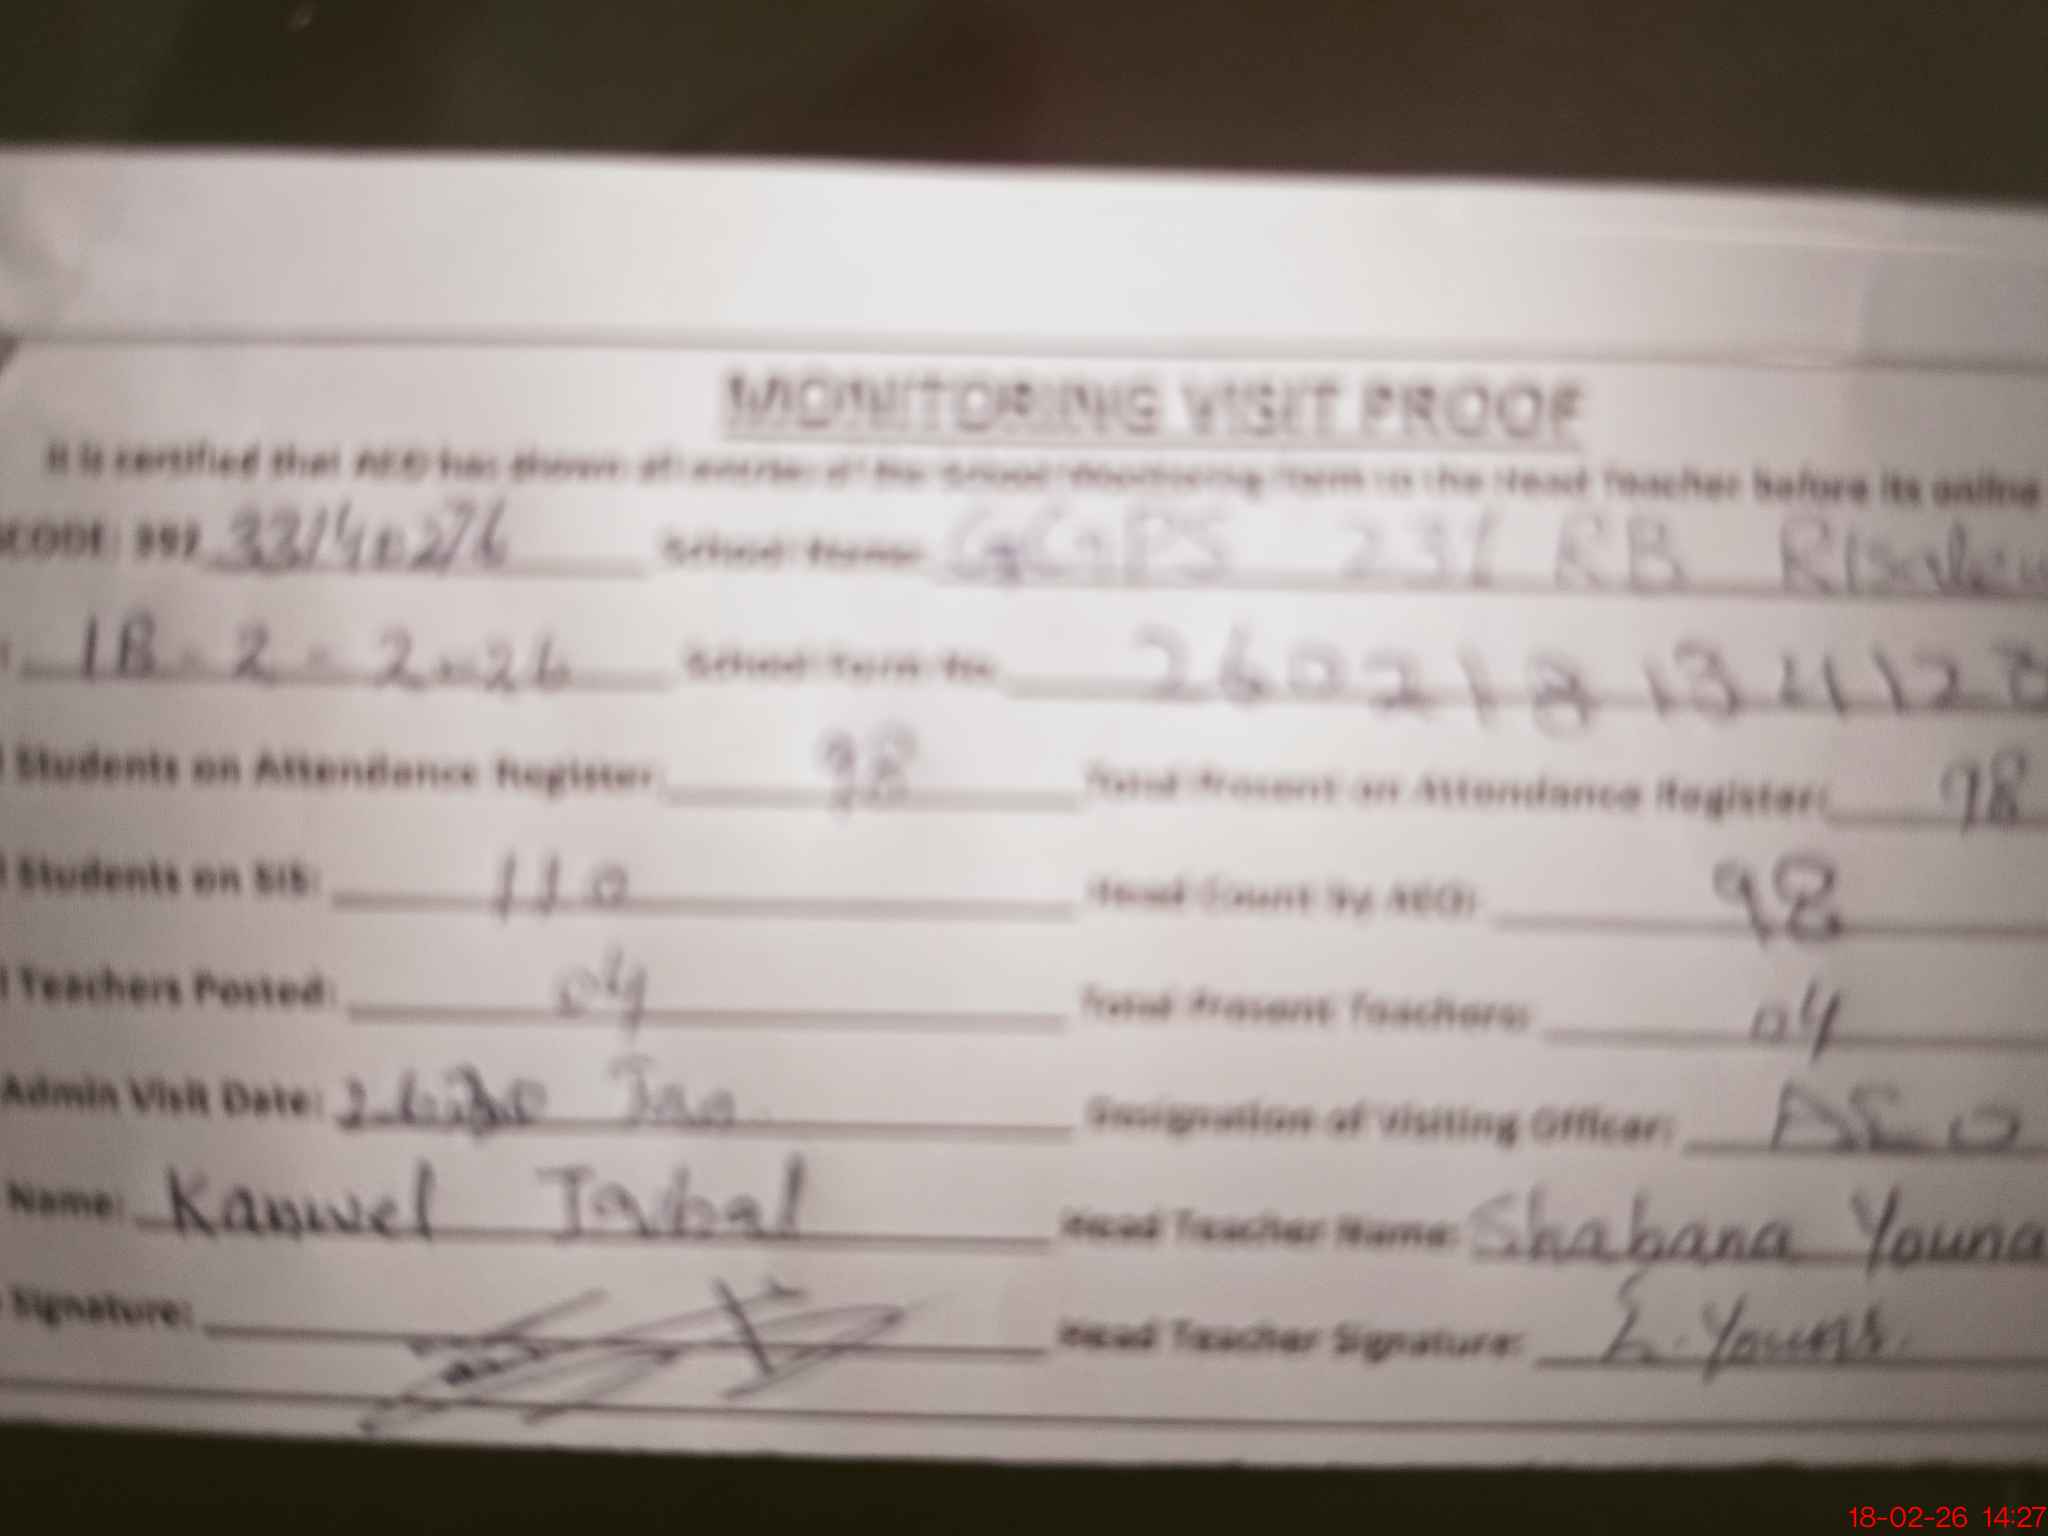 MONITORING VISIT PROOF
It is certified that AEO has shown all entries of the School Monitoring Form to the Head Teacher before its online
School Name: GGPS 231 RB
18-2-2026 School Form No: 
Students on Attendance Register: 98 Total Present on Attendance Register: 98
Students on SIS: 110 Head Count by AEO: 98
Teachers Posted: 04 Total Present Teachers: 04
Admin Visit Date: Jan Designation of Visiting Officer: AEO
Name: Kanwel Iqbal Head Teacher Name: Shabana Youna
Signature: Head Teacher Signature: S. Younis.
18-02-26 14:27